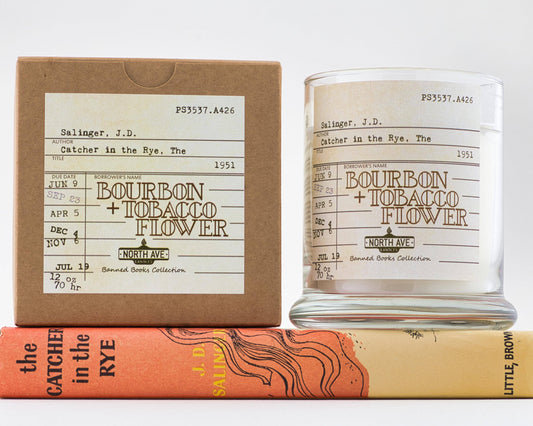 PS3537.A426
Salinger, J.D.
AUTHOR
Catcher in the Rye, The
TITLE
1951
DUE DATE
BORROWER'S NAME
JUN 9
SEP 23
APR 5
DEC 4
NOV 6
JUL 19
12 oz
70 hr
BOURBON
+ TOBACCO
FLOWER
NORTH AVE
CANDLES
Banned Books Collection
PS3537.A426
Salinger, J.D.
AUTHOR
Catcher in the Rye, The
TITLE
1951
BORROWER'S NAME
JUN 9
SEP 23
APR 5
DEC 4
NOV 6
JUL 19
12 oz
70 hr
BOURBON
+ TOBACCO
FLOWER
NORTH AVE
CANDLES
Banned Books Collection
the
CATCHER
in the
RYE
J. D.
SALIN
LITTLE, BROW